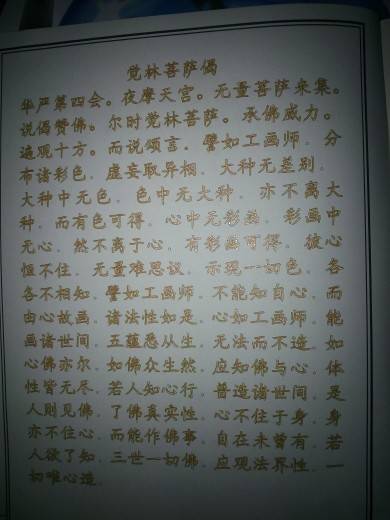 觉林菩萨偈
华严第四会。夜摩天宫。无量菩萨来集。
说偈赞佛。尔时觉林菩萨。承佛威力。
遍观十方。而说颂言。譬如工画师。分
布诸彩色。虚妄取异相。大种无差别。
大种中无色。色中无大种。亦不离大
种。而有色可得。心中无彩画。彩画中
无心。然不离于心。有彩画可得。彼心
恒不住。无量难思议。示现一切色。各
各不相知。譬如工画师。不能知自心。而
由心故画。诸法性如是。心如工画师。能
画诸世间。五蕴悉从生。无法而不造。如
心佛亦尔。如佛众生然。应知佛与心。体
性皆无尽。若人知心行。普造诸世间。是
人则见佛。了佛真实性。心不住于身。身
亦不住心。而能作佛事。自在未曾有。若
人欲了知。三世一切佛。应观法界性。一
切唯心造。